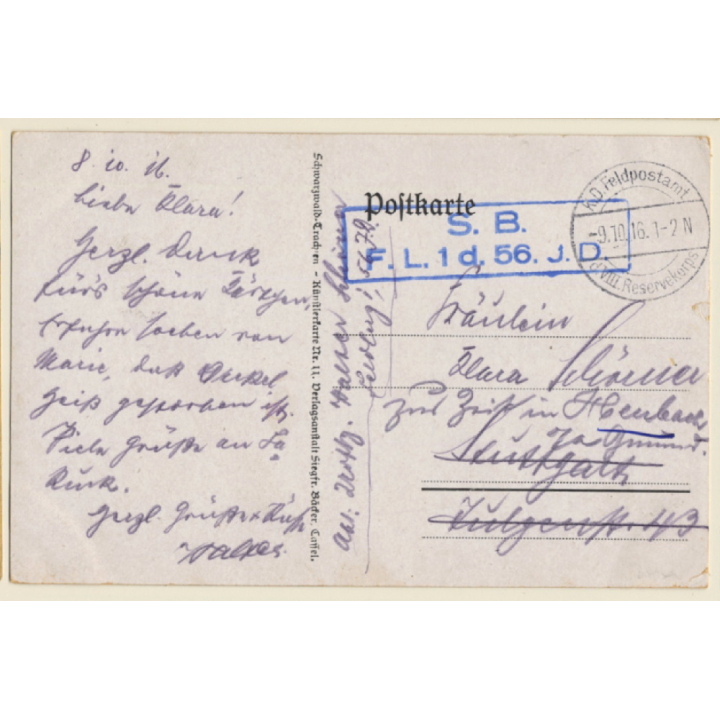 8.10.16.
Liebe Klara!
Herzl. Dank
fürs schöne Kärtchen.
Erfuhr soeben von
Marie, daß Onkel
Geiß gestorben ist.
Viele Grüße an Fa.
Ruck.
Herzl. Grüße + Kuß
Walter
Schwarzwald-Trachten – Künstlerkarte Nr. 11. Verlagsanstalt Siegfr. Bäcker, Cassel.
Abs:
Postkarte
S. B.
F. L. 1 d. 56. J. D.
K.D. Feldpostamt
-9.10.16. 1-2 N
d. VIII. Reservekorps
Fräulein
Klara
zur Zeit in
Gmünd.
Stuttgart
43